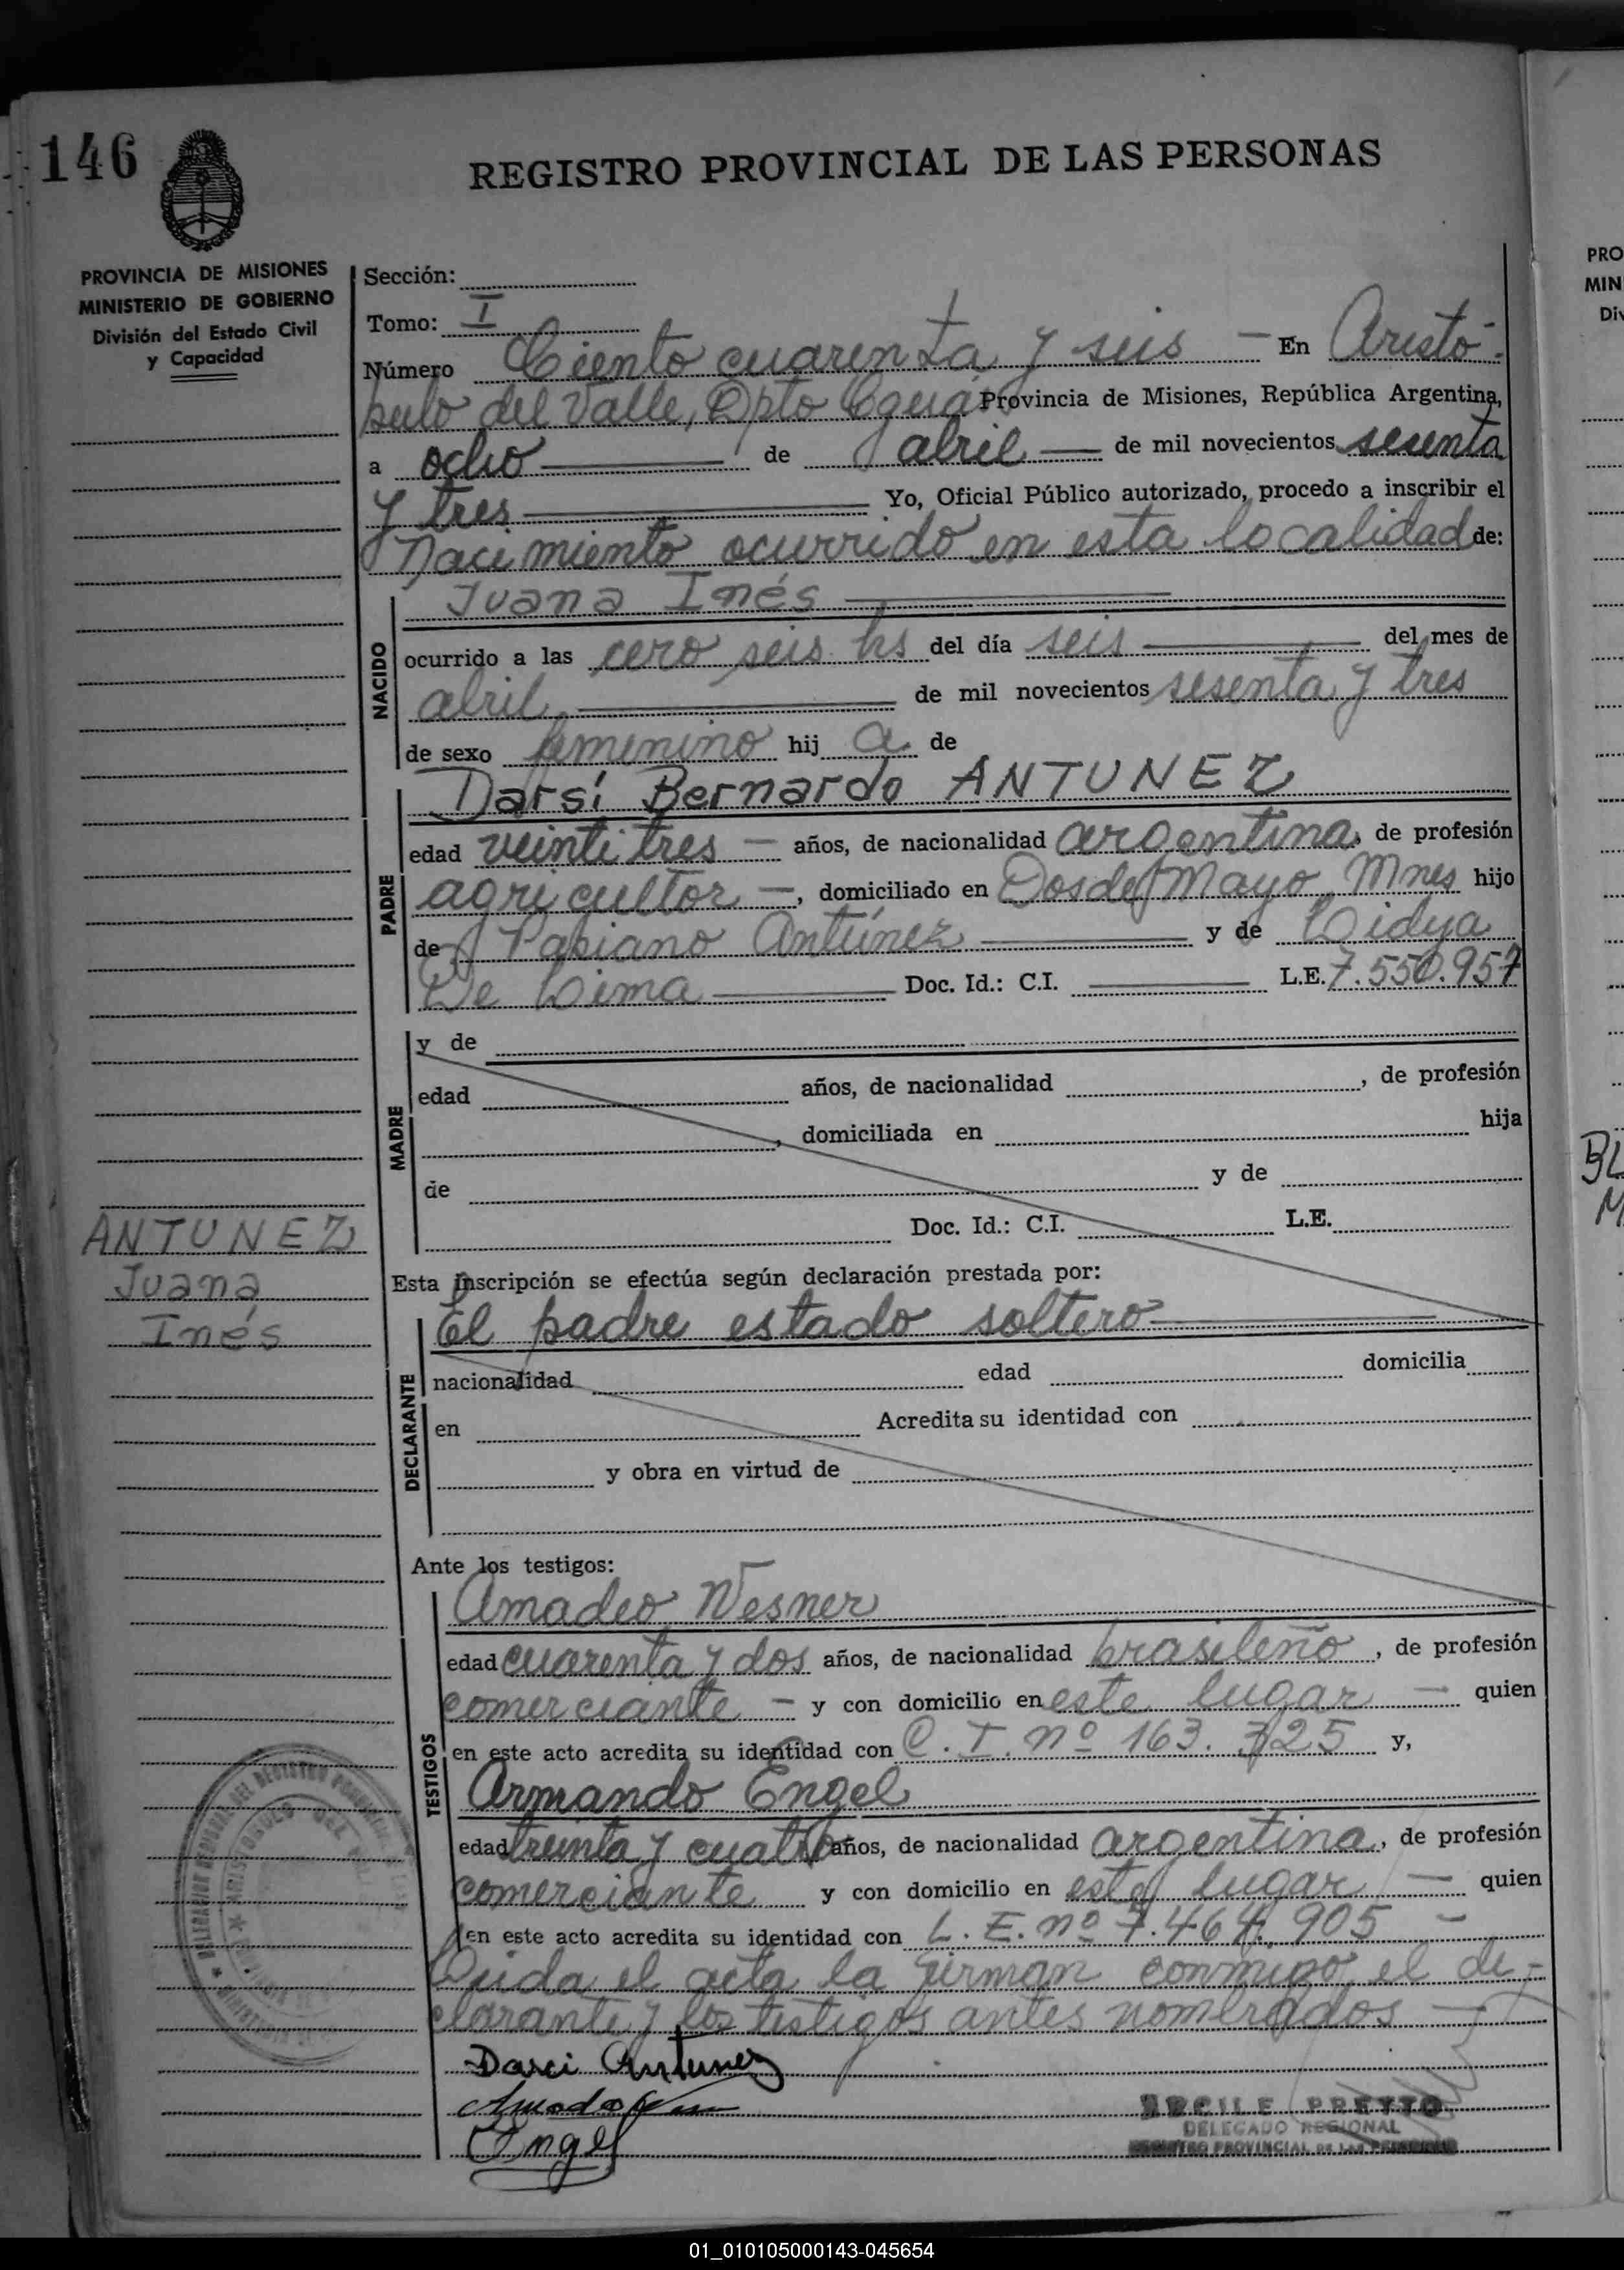 146
REGISTRO PROVINCIAL DE LAS PERSONAS
PROVINCIA DE MISIONES
MINISTERIO DE GOBIERNO
División del Estado Civil
y Capacidad
Sección:
Tomo: I
Número Ciento cuarenta y seis — En Aristó-
bulo del Valle, Dpto Cguás Provincia de Misiones, República Argentina,
a ocho — de abril — de mil novecientos sesenta
y tres — Yo, Oficial Público autorizado, procedo a inscribir el
Nacimiento ocurrido en esta localidad de:
NACIDO
Juana Inés —
ocurrido a las cero seis hs del día seis — del mes de
abril — de mil novecientos sesenta y tres
de sexo femenino hij a de
PADRE
Darsí Bernardo ANTUNEZ
edad veinti tres — años, de nacionalidad argentina, de profesión
agricultor —, domiciliado en Dos de Mayo Mnes hijo
de Fabiano Antúnez — y de Lidya
De Lima — Doc. Id.: C.I. — L.E. 7.550.957
MADRE
y de
edad años, de nacionalidad , de profesión
, domiciliada en hija
de y de
Doc. Id.: C.I. L.E.
ANTUNEZ
Juana
Inés
Esta inscripción se efectúa según declaración prestada por:
DECLARANTE
El padre estado soltero —
nacionalidad edad domicilia
en Acredita su identidad con
y obra en virtud de
Ante los testigos:
TESTIGOS
Amadeo Wesner
edad cuarenta y dos años, de nacionalidad brasileño, de profesión
comerciante — y con domicilio en este lugar — quien
en este acto acredita su identidad con C. I. nº 163. 325 y,
Armando Engel
edad treinta y cuatro años, de nacionalidad argentina, de profesión
comerciante y con domicilio en este lugar — quien
en este acto acredita su identidad con L. E. nº 7.464.905 —
Leida el acta la firman conmigo, el de-
clarante y los testigos antes nombrados —
Darci Antunez
Engel
ARCILE PREYTO
DELEGADO REGIONAL
REGISTRO PROVINCIAL DE LAS PERSONAS
BL
M
PRO
MIN
Div
01_010105000143-045654